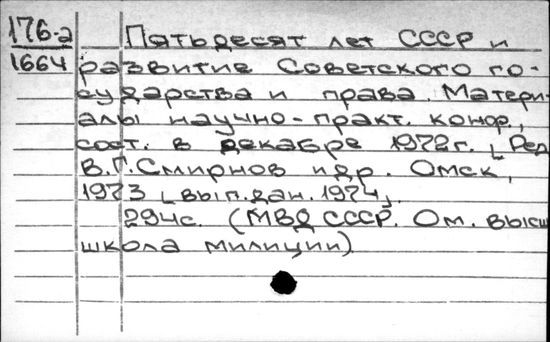 176-2 Пятьдесят лет СССР и
1664 развитие Советского го-
сударства и права. Матери-
алы научно-практ. конф.,
сост. в декабре 1972г. [Ред.
В.Г.Смирнов и др. Омск,
1973 [вып.дан.1974].
294с. (МВД СССР. Ом. высш
школа милиции)